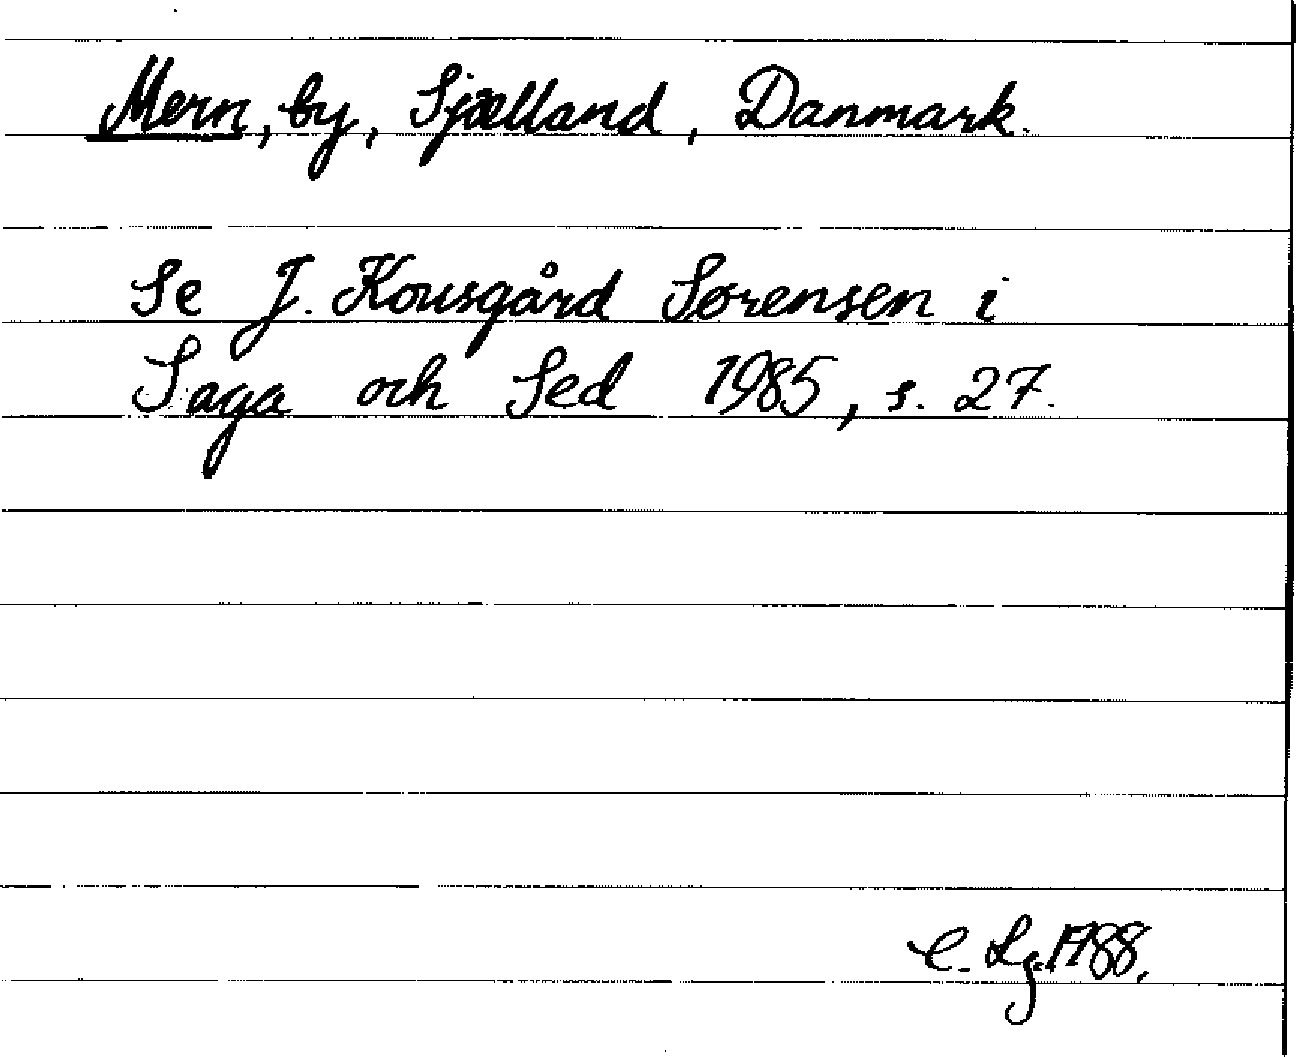 Mern, by, Sjælland, Danmark.
Se J. Kousgård Sørensen i
Saga och Sed 1985, s. 27.
C. Lg. 1988.